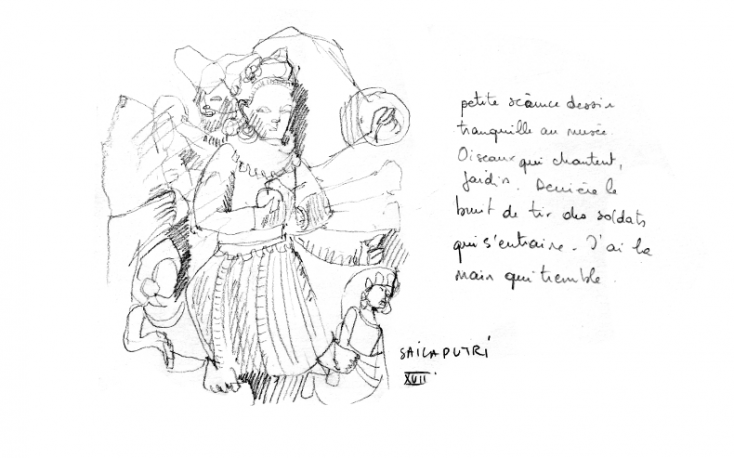 petite séance dessin
tranquille au musée.
Oiseaux qui chantent,
jardin. Derrière le
bruit de tir des soldats
qui s'entraine. J'ai la
main qui tremble.
SAILAPUTRI
XVII